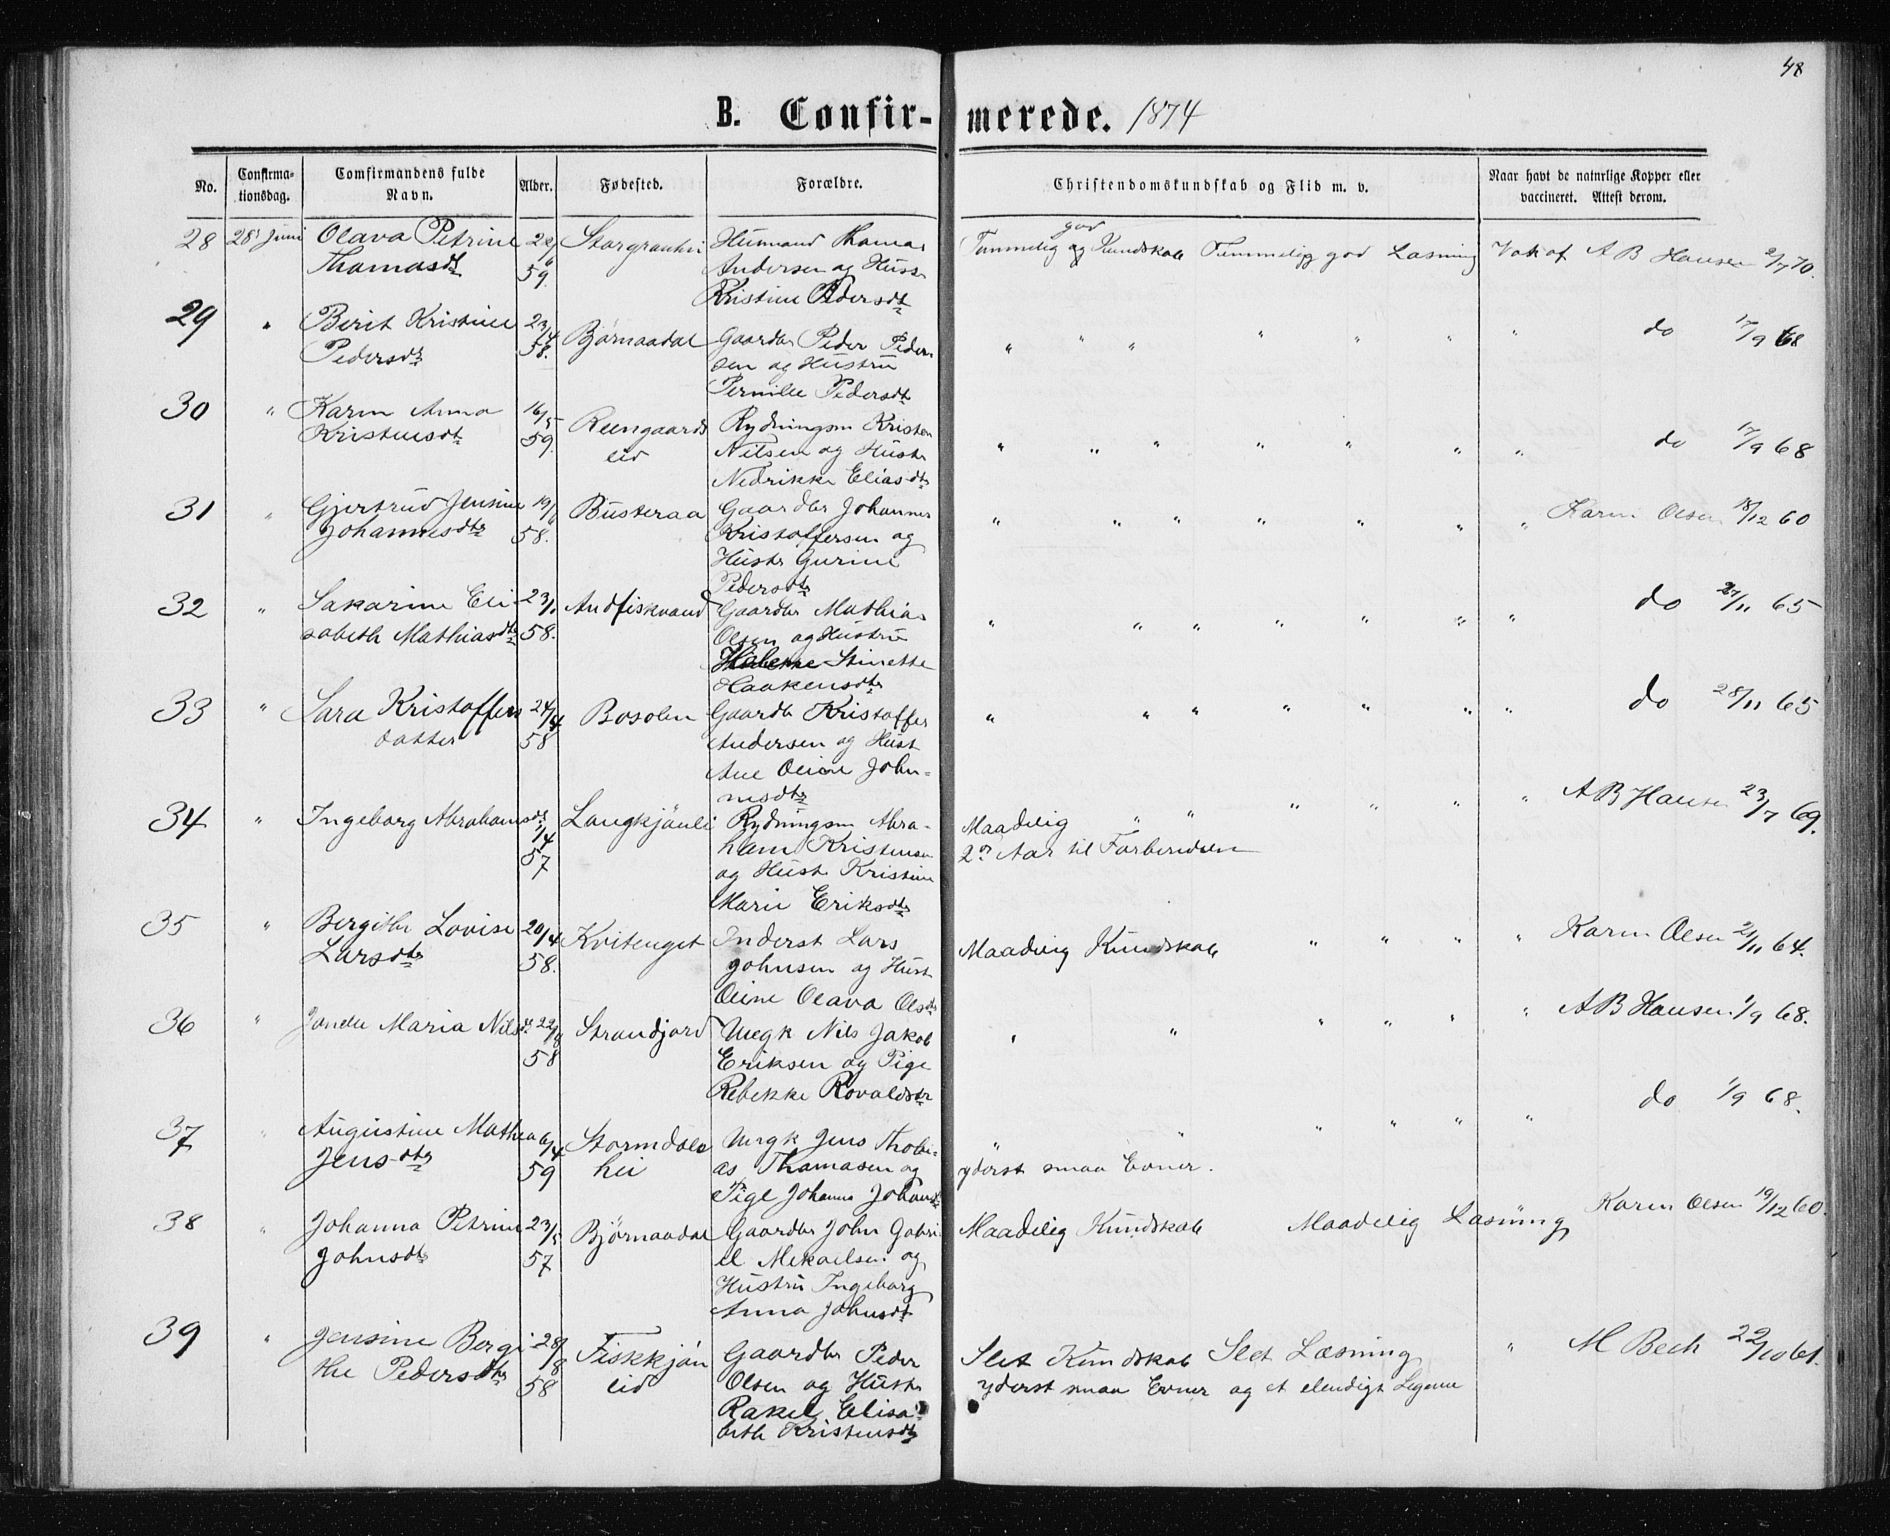 48
B. Confir- merede. 1874
No. Confirma- tionsdag. Comfirmandens fulde Navn. Alder. Fødested. Forældre. Christendomskundskab og Flid m. v. Naar havt de natnrlige Kopper eller vaccineret. Attest derom.
28 28' Juni Olava Petrine Storgranhei Husmand Thomas god
Thomasdtr 59. Andersen og Hustr Temmelig og Kundskab Temmelig god Læsning Vak af A B Hansen 2/7 70.
Kristine Pedersdtr
29 " Berit Kristine 23/4 Bjørnaadal Gaardbr Peder Peder- " " " " " " " do 17/9 68
Pedersdtr 58. sen og Hustru
Pernille Pedersdtr
30 " Karen Anna 16/5 Reengaards Rydningsm Kristen " " " " " " " do 17/9 68
Kristensdtr 59. lid Nilsen og Hustr
Nedrikke Eliasdtr
31 " Gjertrud Jensine 19/ Busteraa Gaardbr Johannes " " " " " " " Karen Olsen 18/12 60
Johannesdtr 58. Kristoffersen og
Hustr Gurine
Pedersdtr
32 " Sakarine Eli- 23/ Andfiskvand Gaardbr Mathias " " " " " " " do 27/11 65
sabeth Mathiasdtr 58. Olsen og Hustru
Stinette
Haakensdtr
33 " Sara Kristoffers 24/4 Bosolen Gaardbr Kristoffer " " " " " " " do 28/11 65
datter 58 Andersen og Hust
Ane Oline John-
nesdtr
34 " Ingeborg Abrahamsdtr /4 Langkjønli Rydningsm Abra- Maadelig " " " " " " A B Hansen 23/7 69.
57 ham Kristensen 2det Aar til Forberedsen
og Hust Kristine
Marie Eriksdtr
35 " Bergithe Lovise 20/4 Kvitenget Inderst Lars Maadelig Kundskab " " " " Karen Olsen 21/11 64.
Larsdtr 58. Johnsen og Hust
Oline Olava Olsdtr
36 " Maria Nilsdtr 22/8 Strandjord Ungk Nils Jakob " " " " " " A B Hansen 1/9 68.
58 Eriksen og Pige
Rebekke Rovaldsdtr
37 " Augustine Mathea 6/4 Stormdals Ungk Jens Thobi- " " " " " " do 1/9 68.
Jensdtr 59 hei as Thomasen og yderst smaa Evner.
Pige Johanna Johansdtr
38 " Johanna Petrine 23/5 Bjørnaadal Gaardbr John Gabri- Maadelig Kundskab Maadelig Læsning Karen Olsen 19/12 60.
Johnsdtr 57 el Mekaelsen og
Hustru Ingeborg
Anna Johnsdtr
39 " Jensine Bergi- 28/8 Fiskkjøn Gaardbr Peder Slet Kundskab Slet Læsning " M Bech 22/10 61.
the Pedersdtr 58 lid Olsen og Hustr yderst smaa Evner og et elendigt Legeme
Rakel Elisa-
beth Kristensdtr